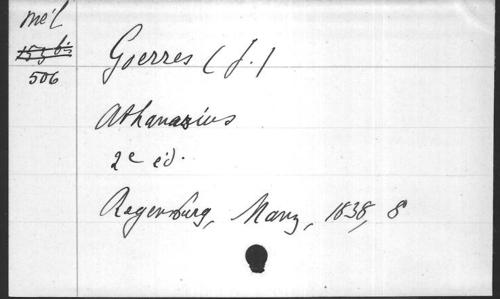 Mél
153 bis
506
Goerres (J.)
Athanasius
2e éd.
Regensburg, Manz, 1838, 8